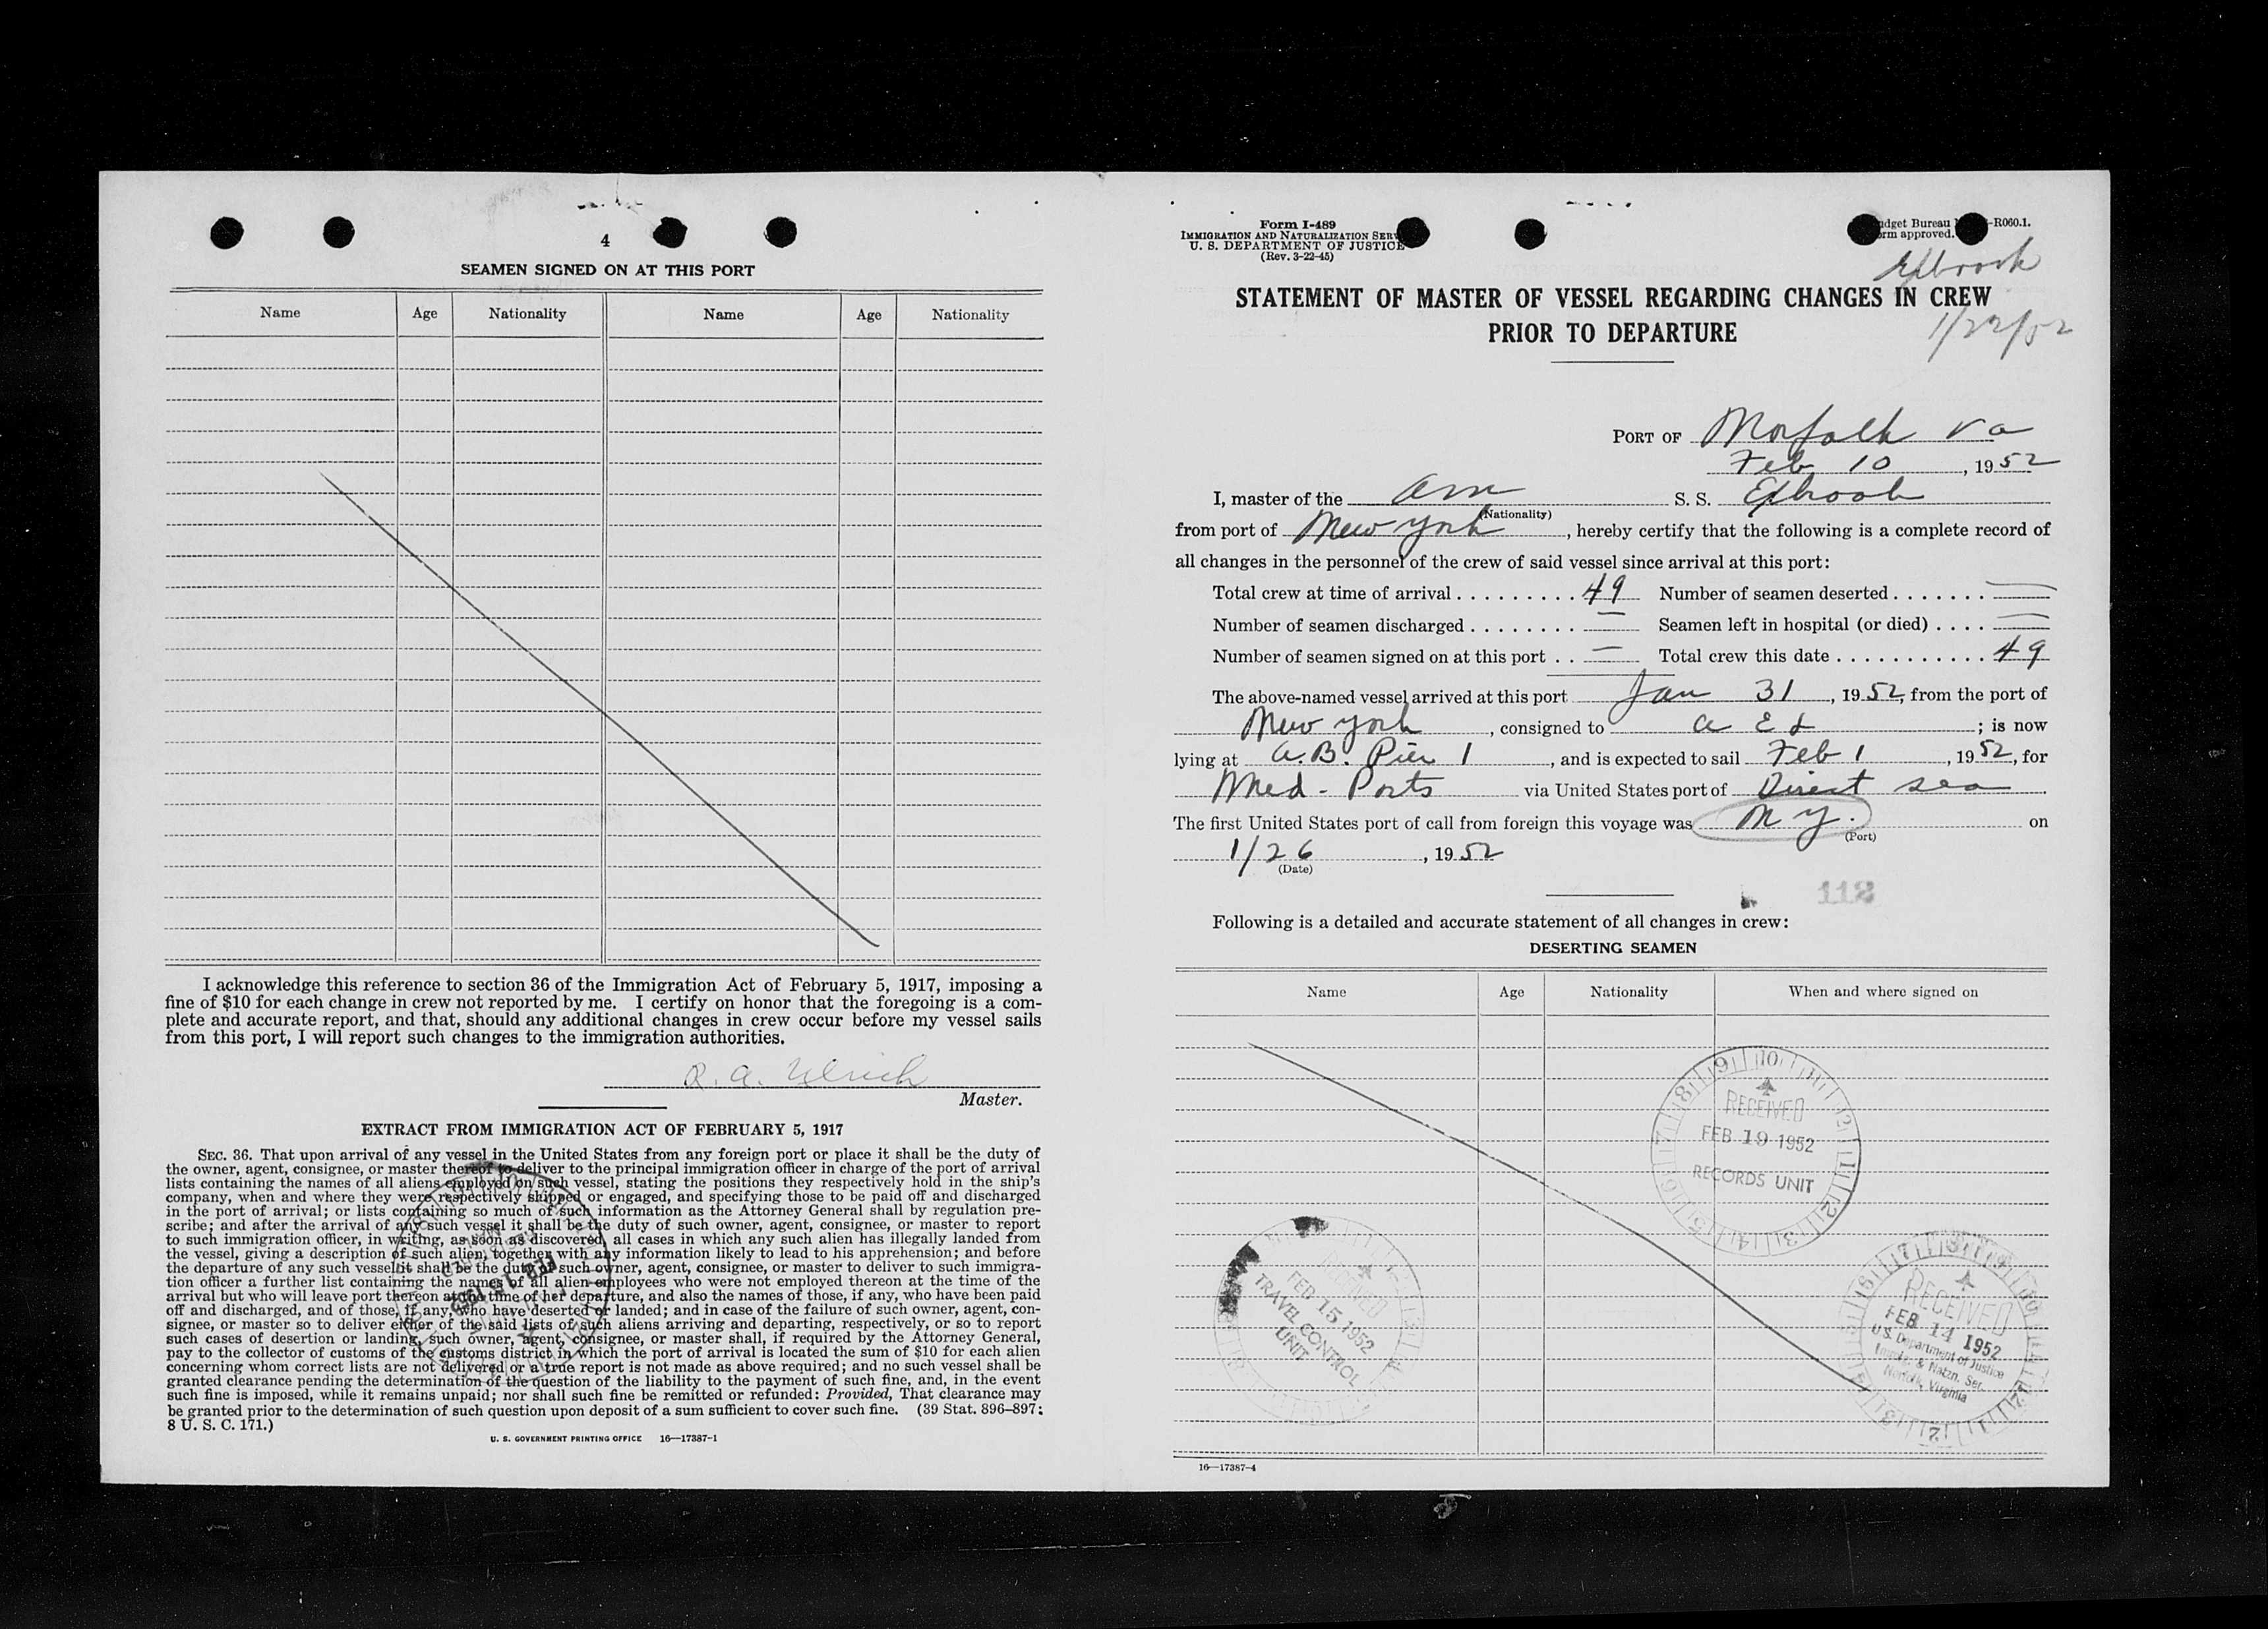 4
SEAMEN SIGNED ON AT THIS PORT
Name Age Nationality Name Age Nationality
I acknowledge this reference to section 36 of the Immigration Act of February 5, 1917, imposing a
fine of $10 for each change in crew not reported by me. I certify on honor that the foregoing is a com-
plete and accurate report, and that, should any additional changes in crew occur before my vessel sails
from this port, I will report such changes to the immigration authorities.
R. A. Ulrich
Master.
EXTRACT FROM IMMIGRATION ACT OF FEBRUARY 5, 1917
SEC. 36. That upon arrival of any vessel in the United States from any foreign port or place it shall be the duty of
the owner, agent, consignee, or master thereof to deliver to the principal immigration officer in charge of the port of arrival
lists containing the names of all aliens employed on such vessel, stating the positions they respectively hold in the ship's
company, when and where they were respectively shipped or engaged, and specifying those to be paid off and discharged
in the port of arrival; or lists containing so much of such information as the Attorney General shall by regulation pre-
scribe; and after the arrival of any such vessel it shall be the duty of such owner, agent, consignee, or master to report
to such immigration officer, in writing, as soon as discovered, all cases in which any such alien has illegally landed from
the vessel, giving a description of such alien, together with any information likely to lead to his apprehension; and before
the departure of any such vessel it shall be the duty of such owner, agent, consignee, or master to deliver to such immigra-
tion officer a further list containing the names of all alien employees who were not employed thereon at the time of the
arrival but who will leave port thereon at the time of her departure, and also the names of those, if any, who have been paid
off and discharged, and of those, if any, who have deserted or landed; and in case of the failure of such owner, agent, con-
signee, or master so to deliver either of the said lists of such aliens arriving and departing, respectively, or so to report
such cases of desertion or landing, such owner, agent, consignee, or master shall, if required by the Attorney General,
pay to the collector of customs of the customs district in which the port of arrival is located the sum of $10 for each alien
concerning whom correct lists are not delivered or a true report is not made as above required; and no such vessel shall be
granted clearance pending the determination of the question of the liability to the payment of such fine, and, in the event
such fine is imposed, while it remains unpaid; nor shall such fine be remitted or refunded: Provided, That clearance may
be granted prior to the determination of such question upon deposit of a sum sufficient to cover such fine. (39 Stat. 896–897;
8 U. S. C. 171.)
U. S. GOVERNMENT PRINTING OFFICE 16—17387-1
Form I-489
IMMIGRATION AND NATURALIZATION SERV
U. S. DEPARTMENT OF JUSTICE
(Rev. 3-22-45)
dget Bureau -R060.1.
rm approved.
Exbrook
STATEMENT OF MASTER OF VESSEL REGARDING CHANGES IN CREW
PRIOR TO DEPARTURE
PORT OF Norfolk Va
Feb 10, 1952
I, master of the Am S. S. Exbrook
(Nationality)
from port of New York, hereby certify that the following is a complete record of
all changes in the personnel of the crew of said vessel since arrival at this port:
Total crew at time of arrival . . . . . . . . . 49 Number of seamen deserted . . . . . . . —
Number of seamen discharged . . . . . . . . — Seamen left in hospital (or died) . . . . —
Number of seamen signed on at this port . . — Total crew this date . . . . . . . . . . . 49
The above-named vessel arrived at this port Jan 31, 1952, from the port of
New York, consigned to A E L; is now
lying at A.B. Pier 1, and is expected to sail Feb 1, 1952, for
Med - Ports via United States port of Direct sea.
The first United States port of call from foreign this voyage was N Y. on
(Port)
1/26, 1952
(Date)
112
Following is a detailed and accurate statement of all changes in crew:
DESERTING SEAMEN
Name Age Nationality When and where signed on
RECEIVED
FEB 19 1952
RECORDS UNIT
RECEIVED
FEB 15 1952
TRAVEL CONTROL
UNIT
RECEIVED
FEB 14 1952
U.S. Department of Justice
Immig. & Natzn. Ser.
Norfolk, Virginia
16—17387-4